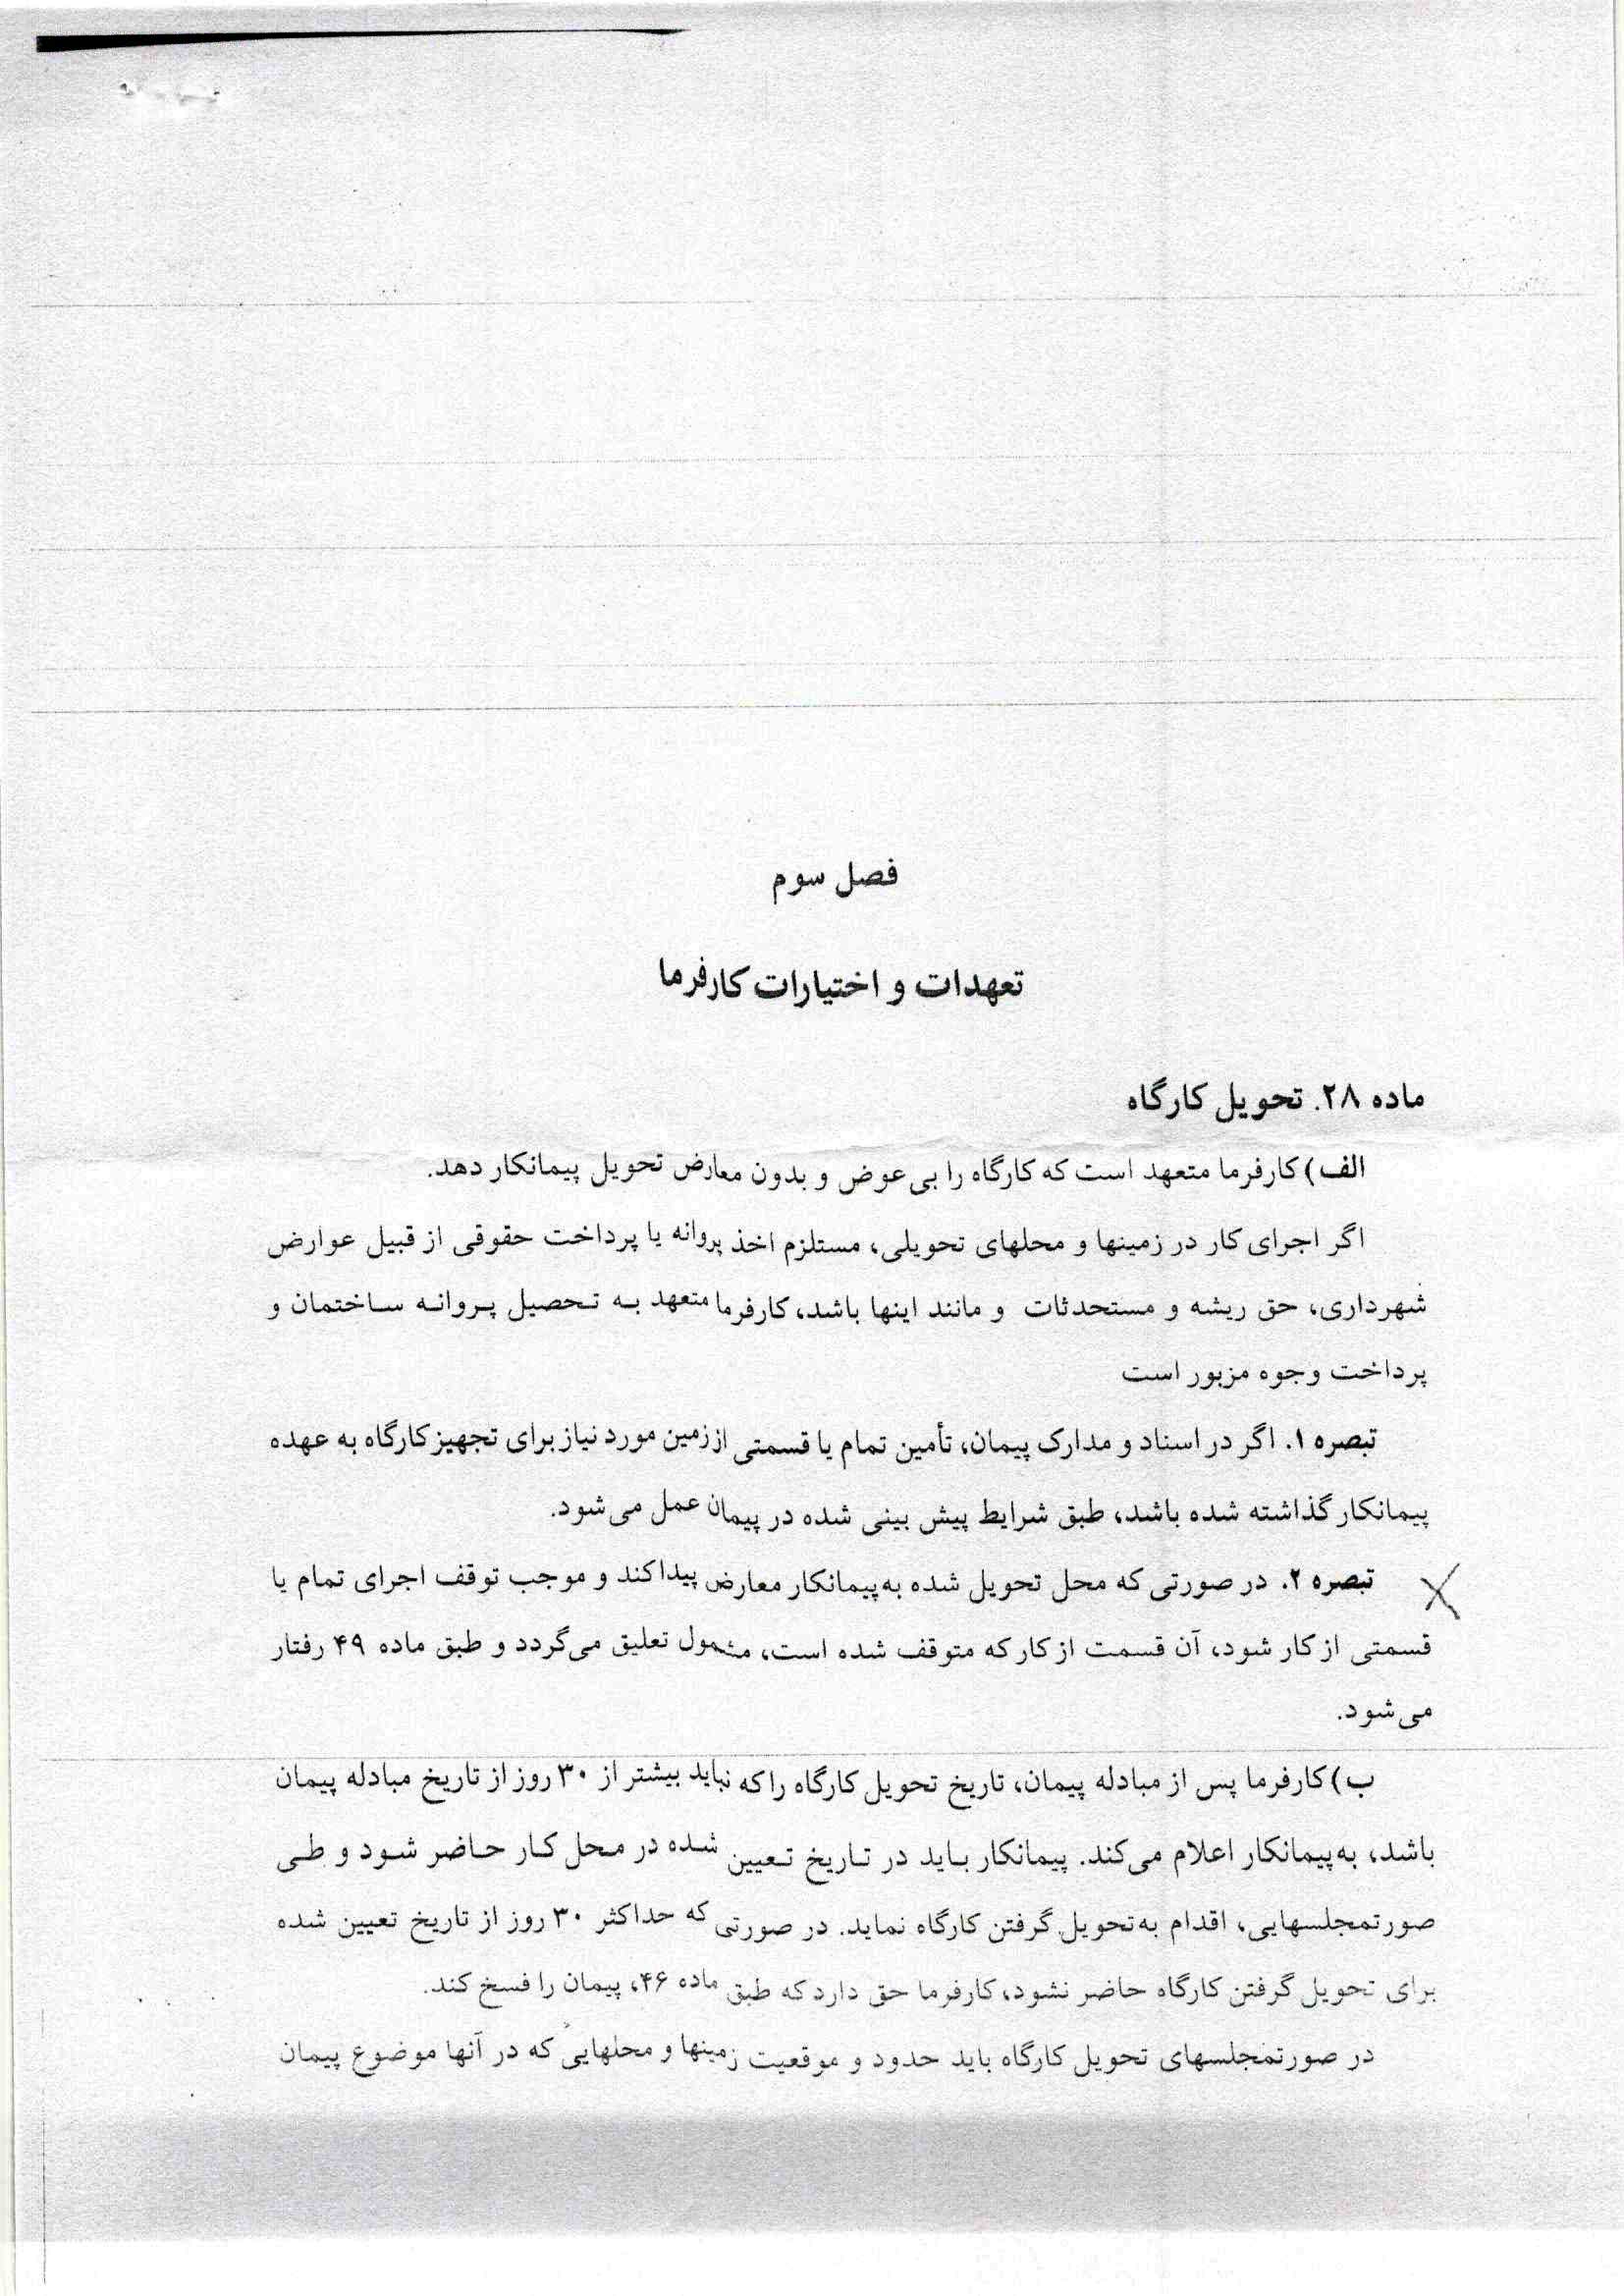 فصل سوم
تعهدات و اختیارات کارفرما
ماده ۲۸. تحویل کارگاه
الف) کارفرما متعهد است که کارگاه را بی‌عوض و بدون معارض تحویل پیمانکار دهد.
اگر اجرای کار در زمینها و محلهای تحویلی، مستلزم اخذ پروانه یا پرداخت حقوقی از قبیل عوارض
شهرداری، حق ریشه و مستحدثات و مانند اینها باشد، کارفرما متعهد به تحصیل پروانه ساختمان و
پرداخت وجوه مزبور است
تبصره ۱. اگر در اسناد و مدارک پیمان، تأمین تمام یا قسمتی از زمین مورد نیاز برای تجهیز کارگاه به عهده
پیمانکار گذاشته شده باشد، طبق شرایط پیش بینی شده در پیمان عمل می‌شود.
تبصره ۲. در صورتی که محل تحویل شده به‌پیمانکار معارض پیدا کند و موجب توقف اجرای تمام یا
قسمتی از کار شود، آن قسمت از کار که متوقف شده است، مشمول تعلیق می‌گردد و طبق ماده ۴۹ رفتار
می‌شود.
ب) کارفرما پس از مبادله پیمان، تاریخ تحویل کارگاه را که نباید بیشتر از ۳۰ روز از تاریخ مبادله پیمان
باشد، به‌پیمانکار اعلام می‌کند. پیمانکار باید در تاریخ تعیین شده در محل کار حاضر شود و طی
صورتمجلسهایی، اقدام به‌تحویل گرفتن کارگاه نماید. در صورتی که حداکثر ۳۰ روز از تاریخ تعیین شده
برای تحویل گرفتن کارگاه حاضر نشود، کارفرما حق دارد که طبق ماده ۴۶، پیمان را فسخ کند.
در صورتمجلسهای تحویل کارگاه باید حدود و موقعیت زمینها و محلهایی که در آنها موضوع پیمان